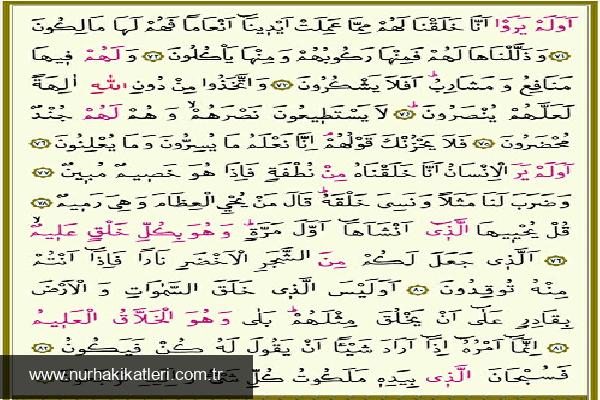 اَوَلَمْ يَرَوْا اَنَّا خَلَقْنَا لَهُمْ مِمَّا عَمِلَتْ اَيْدٖينَٓا اَنْعَاماً فَهُمْ لَهَا مَالِكُونَ
﴿٧١﴾ وَذَلَّلْنَاهَا لَهُمْ فَمِنْهَا رَكُوبُهُمْ وَمِنْهَا يَأْكُلُونَ ﴿٧٢﴾ وَلَهُمْ فٖيهَا
مَنَافِعُ وَمَشَارِبُۜ اَفَلَا يَشْكُرُونَ ﴿٧٣﴾ وَاتَّخَذُوا مِنْ دُونِ اللّٰهِ اٰلِهَةً
لَعَلَّهُمْ يُنْصَرُونَ ﴿٧٤﴾ لَا يَسْتَطٖيعُونَ نَصْرَهُمْۙ وَهُمْ لَهُمْ جُنْدٌ
مُحْضَرُونَ ﴿٧٥﴾ فَلَا يَحْزُنْكَ قَوْلُهُمْۘ اِنَّا نَعْلَمُ مَا يُسِرُّونَ وَمَا يُعْلِنُونَ ﴿٧٦﴾
اَوَلَمْ يَرَ الْاِنْسَانُ اَنَّا خَلَقْنَاهُ مِنْ نُطْفَةٍ فَاِذَا هُوَ خَصٖيمٌ مُبٖينٌ ﴿٧٧﴾
وَضَرَبَ لَنَا مَثَلاً وَنَسِيَ خَلْقَهُۜ قَالَ مَنْ يُحْيِ الْعِظَامَ وَهِيَ رَمٖيمٌ ﴿٧٨﴾
قُلْ يُحْيٖيهَا الَّذٖٓي اَنْشَاَهَٓا اَوَّلَ مَرَّةٍۜ وَهُوَ بِكُلِّ خَلْقٍ عَلٖيمٌۙ
﴿٧٩﴾ اَلَّذٖي جَعَلَ لَكُمْ مِنَ الشَّجَرِ الْاَخْضَرِ نَاراً فَاِذَٓا اَنْتُمْ
مِنْهُ تُوقِدُونَ ﴿٨٠﴾ اَوَلَيْسَ الَّذٖي خَلَقَ السَّمٰوَاتِ وَالْاَرْضَ
بِقَادِرٍ عَلٰٓى اَنْ يَخْلُقَ مِثْلَهُمْۜ بَلٰى وَهُوَ الْخَلَّاقُ الْعَلٖيمُ
﴿٨١﴾ اِنَّمَٓا اَمْرُهُٓ اِذَٓا اَرَادَ شَيْـٔاً اَنْ يَقُولَ لَهُ كُنْ فَيَكُونُ ﴿٨٢﴾
فَسُبْحَانَ الَّذٖي بِيَدِهٖ مَلَكُوتُ كُلِّ شَيْءٍ
www.nurhakikatleri.com.tr